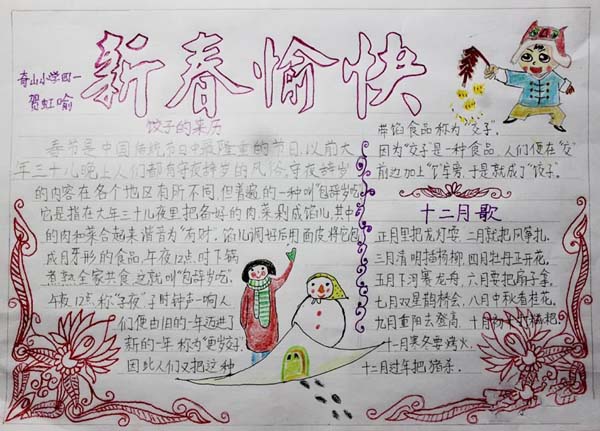 新春愉快
奇山小学四一
贺虹喻
饺子的来历
春节是中国传统节日中最隆重的节日,以前大
年三十儿晚上人们都有守夜辞岁的风俗,守夜辞岁
的内容在各个地区有所不同,但普遍的一种叫"包辞岁"
它是指在大年三十儿夜里把各好的肉菜剁成馅儿,其中
的肉和菜合起来谐音为"有财"。馅儿调好后用面皮将它包
成月牙形的食品,午夜12点,时下锅
煮熟全家共食,这就叫"包辞岁"。
午夜12点,称"子夜"子时钟声一响人
们便由旧的一年迈进了
新的一年称为"更岁交子"
因此人们又把这种
带馅食品称为"交子"。
因为"交子"是一种食品,人们便在"交"
前边加上"饣"车旁,于是就成了"饺子"。
十二月歌
正月里把龙灯耍 二月就把风筝扎,
三月清明插杨柳 四月牡丹正开花,
五月下河赛龙舟,六月要把扇子拿,
七月双星鹊桥会,八月中秋看桂花,
九月重阳去登高 十月
十一月寒冬要烤火,
十二月过年把猪杀.